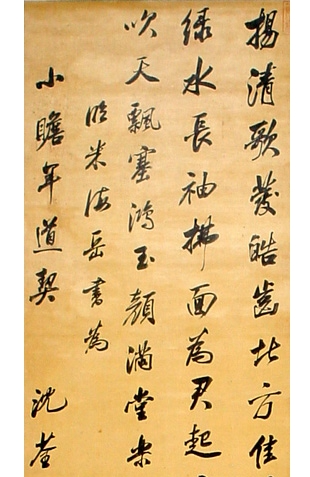 揚清歌發皓齒北方佳
綠水長袖拂面為君起
吹天飄塞鴻玉顏滿堂樂
臨米海岳書為
小瞻年道契 沈荃